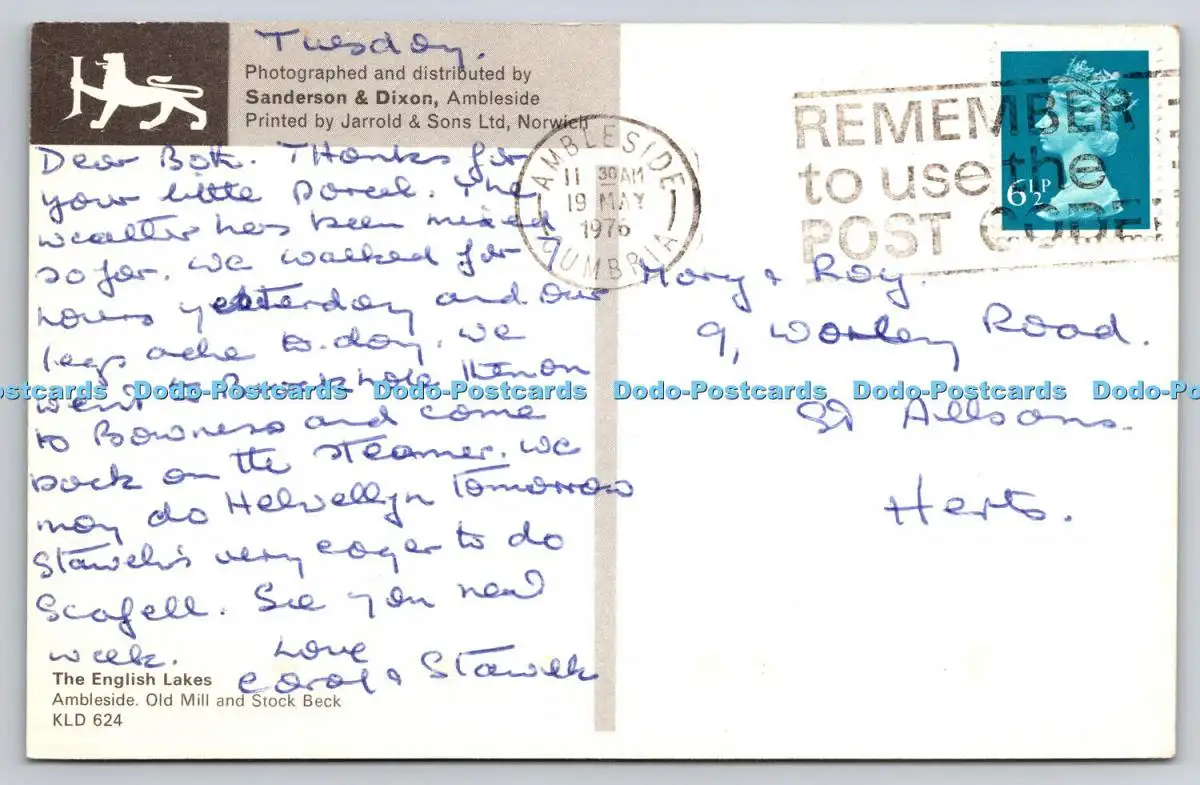 Tuesday.
Photographed and distributed by
Sanderson & Dixon, Ambleside
Printed by Jarrold & Sons Ltd, Norwich
Dear Both. Thanks for
your little parcel. The
weather has been mixed
so far. We walked for 9
hours yesterday and our
legs ache to-day. We
went to Brockhole then on
to Bowness and come
back on the steamer. We
may do Helvellyn Tomorrow
very eager to do
Scafell. See you next
week. Love
Carol &
The English Lakes
Ambleside. Old Mill and Stock Beck
KLD 624
AMBLESIDE
11 30AM
19 MAY
1976
CUMBRIA
REMEMBER
to use the
POST CODE
6½P
Mary & Roy.
9, Worley Road.
St Albans.
Herts.
Dodo-Postcards Dodo-Postcards Dodo-Postcards Dodo-Postcards Dodo-Postcards